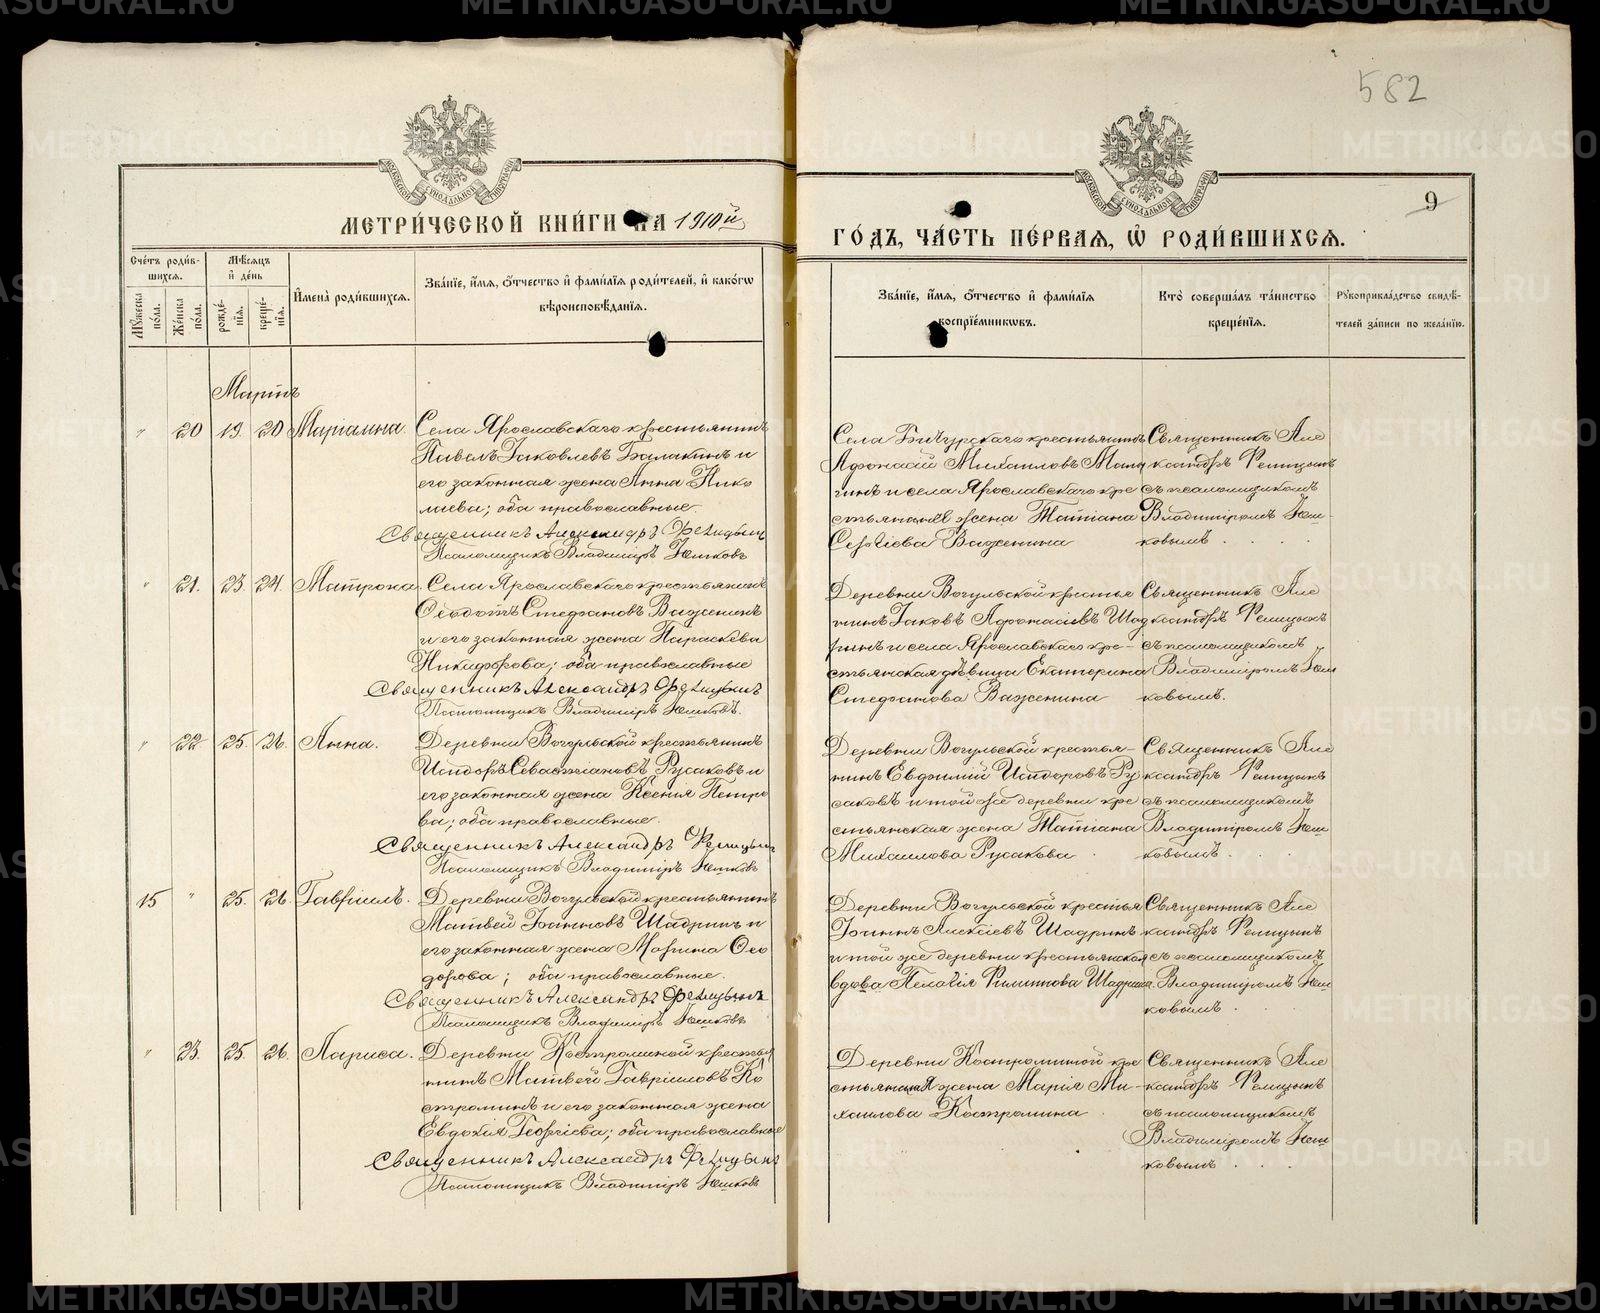 582
МЕТРИ́ЧЕСКОЙ КНИ́ГИ НА 1910й
ГО́ДЪ, ЧА́СТЬ ПЕ́РВАЯ, Ѡ҆ РОДИ́ВШИХСЯ.
9
Сче́тъ роди́в-
шихся.
Мѣ́сяцъ
и҆ де́нь
Мꙋ́жеска
по́ла.
Же́нска
по́ла.
рожде́-
нїя.
креще́-
нїя.
И҆мена̀ роди́вшихся.
Зва́нїе, и҆́мя, ѻ҆́тчество и҆ фамі́лїя роди́телей, и҆ како́гѡ
вѣроисповѣ́данїя.
Зва́нїе, и҆́мя, ѻ҆́тчество и҆ фамі́лїя
воспрїе́мникѡвъ.
Кто̀ соверша́лъ та́инство
креще́нїя.
Рꙋкоприкла́дство свидѣ́-
телей за́писи по жела́нїю.
Мартъ
" 20 19. 20 Маріамна. Села Ярославскаго крестьянинъ
Павелъ Іаковлевъ Балакинъ и
его законная жена Анна Нико
лаева; оба православные.
Священникъ Александръ Фелицынъ
Псаломщикъ Владиміръ Юшковъ
Села Бичурскаго крестьянинъ
Афонасій Михаиловъ
гинъ и села Ярославскаго кре
стьянина жена Татіана
Сергіева Важенина
Священникъ Але
ксандръ Фелицынъ
съ псаломщикомъ
Владиміромъ Юш-
ковымъ.
" 21. 23. 24. Матрона. Села Ярославскаго крестьянинъ
Ѳеодотъ Стефановъ Важенинъ
и его законная жена Параскева
Никифорова; оба православные
Священникъ Александръ Фелицынъ
Псаломщикъ Владиміръ Юшковъ.
Деревни Вогульской крестья
нинъ Іаковъ Афонасіевъ Шад
ринъ и села Ярославскаго кре-
стьянская дѣвица Екатерина
Стефанова Важенина
Священникъ Але
ксандръ Фелицынъ
съ псаломщикомъ
Владиміромъ Юш
ковымъ.
" 22 25. 26. Анна. Деревни Вогульской крестьянинъ
Исидоръ Севастіановъ Русаковъ и
его законная жена Ксенія Петро
ва; оба православные.
Священникъ Александръ Фелицынъ
Псаломщикъ Владиміръ Юшковъ
Деревни Вогульской крестья-
нинъ Евфимій Исидоровъ Ру
саковъ и той же деревни кре
стьянская жена Татіана
Михаилова Русакова
Священникъ Але
ксандръ Фелицынъ
съ псаломщикомъ
Владиміромъ Юш
ковымъ.
15 " 25. 26. Гавріилъ. Деревни Вогульской крестьянинъ
Матвей Іоанновъ Шадринъ и
его законная жена Марина Ѳео
дорова; оба православные.
Священникъ Александръ Фелицынъ
Псаломщикъ Владиміръ Юшковъ
Деревни Вогульской крестья
Іоаннъ Алексіевъ Шадринъ
и той же деревни крестьянская
вдова Пелагія Филиппова Шадрина.
Священникъ Але
ксандръ Фелицынъ
съ псаломщикомъ
Владиміромъ Юш
ковымъ.
" 23. 25. 26. Лариса. Деревни Костроминой крестья
нинъ Матвей Гавріиловъ Ко
строминъ и его законная жена
Евдокія Георгіева; оба православные
Священникъ Александръ Фелицынъ
Псаломщикъ Владиміръ Юшковъ
Деревни Костроминой кре
стьянская жена Марія Ми-
хаилова Костромина
Священникъ Але
ксандръ Фелицынъ
съ псаломщикомъ
Владиміромъ Юш
ковымъ.
METRIKI.GASO-URAL.RU